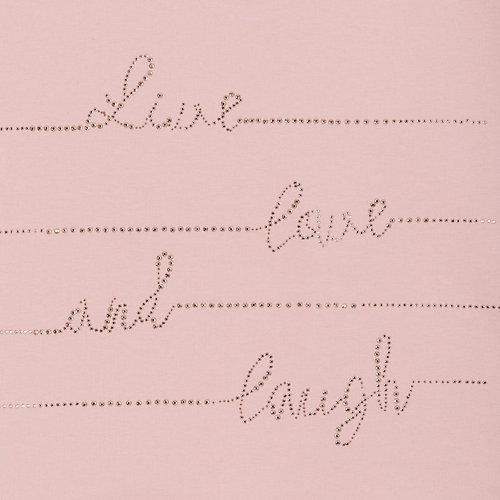 Live
love
and
laugh